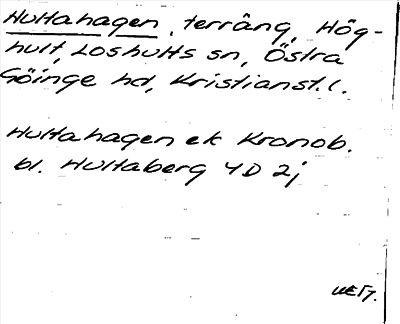 Hultahagen, terräng, Hög-
hult, Loshults sn, Östra
Göinge hd, Kristianst. l.
Hultahagen ek Kronob.
bl. Hultaberg 4D 2j